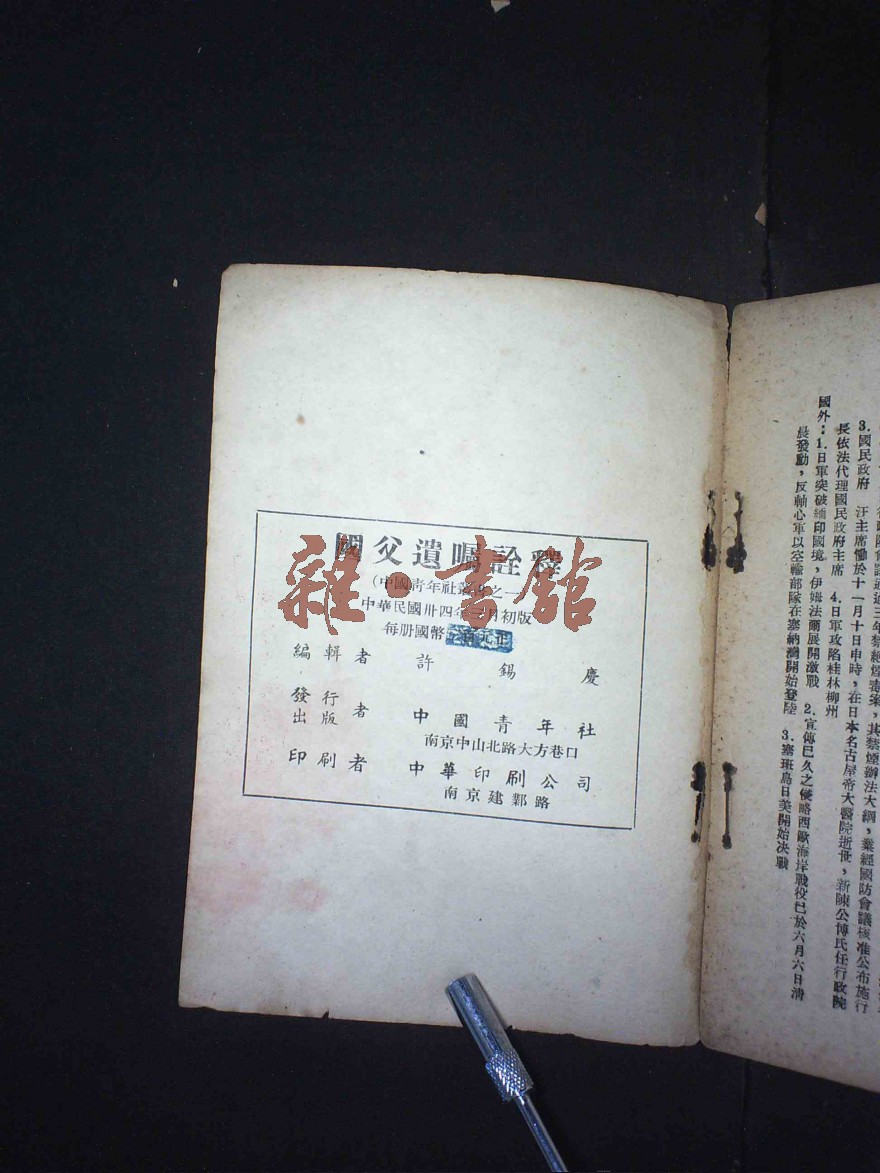 國父遺囑詮釋
(中國青年社叢書之一)
中華民國卅四年三月初版
每册國幣 百元正
編輯者 許錫慶
發行
出版者 中國青年社
南京中山北路大方巷口
印刷者 中華印刷公司
南京建鄴路
雜·書館
3.國民政府 汪主席慟於十一月十日申時,在日本名古屋帝大醫院逝世,新陳公博氏任行政院
長依法代理國民政府主席 4.日軍攻陷桂林柳州
國外:1.日軍突破緬印國境,伊姆法爾展開激戰 2.宣傳已久之侵略西歐海岸戰役已於六月六日清
晨發動,反軸心軍以空輸部隊在塞納灣開始登陸 3.塞班島日美開始決戰